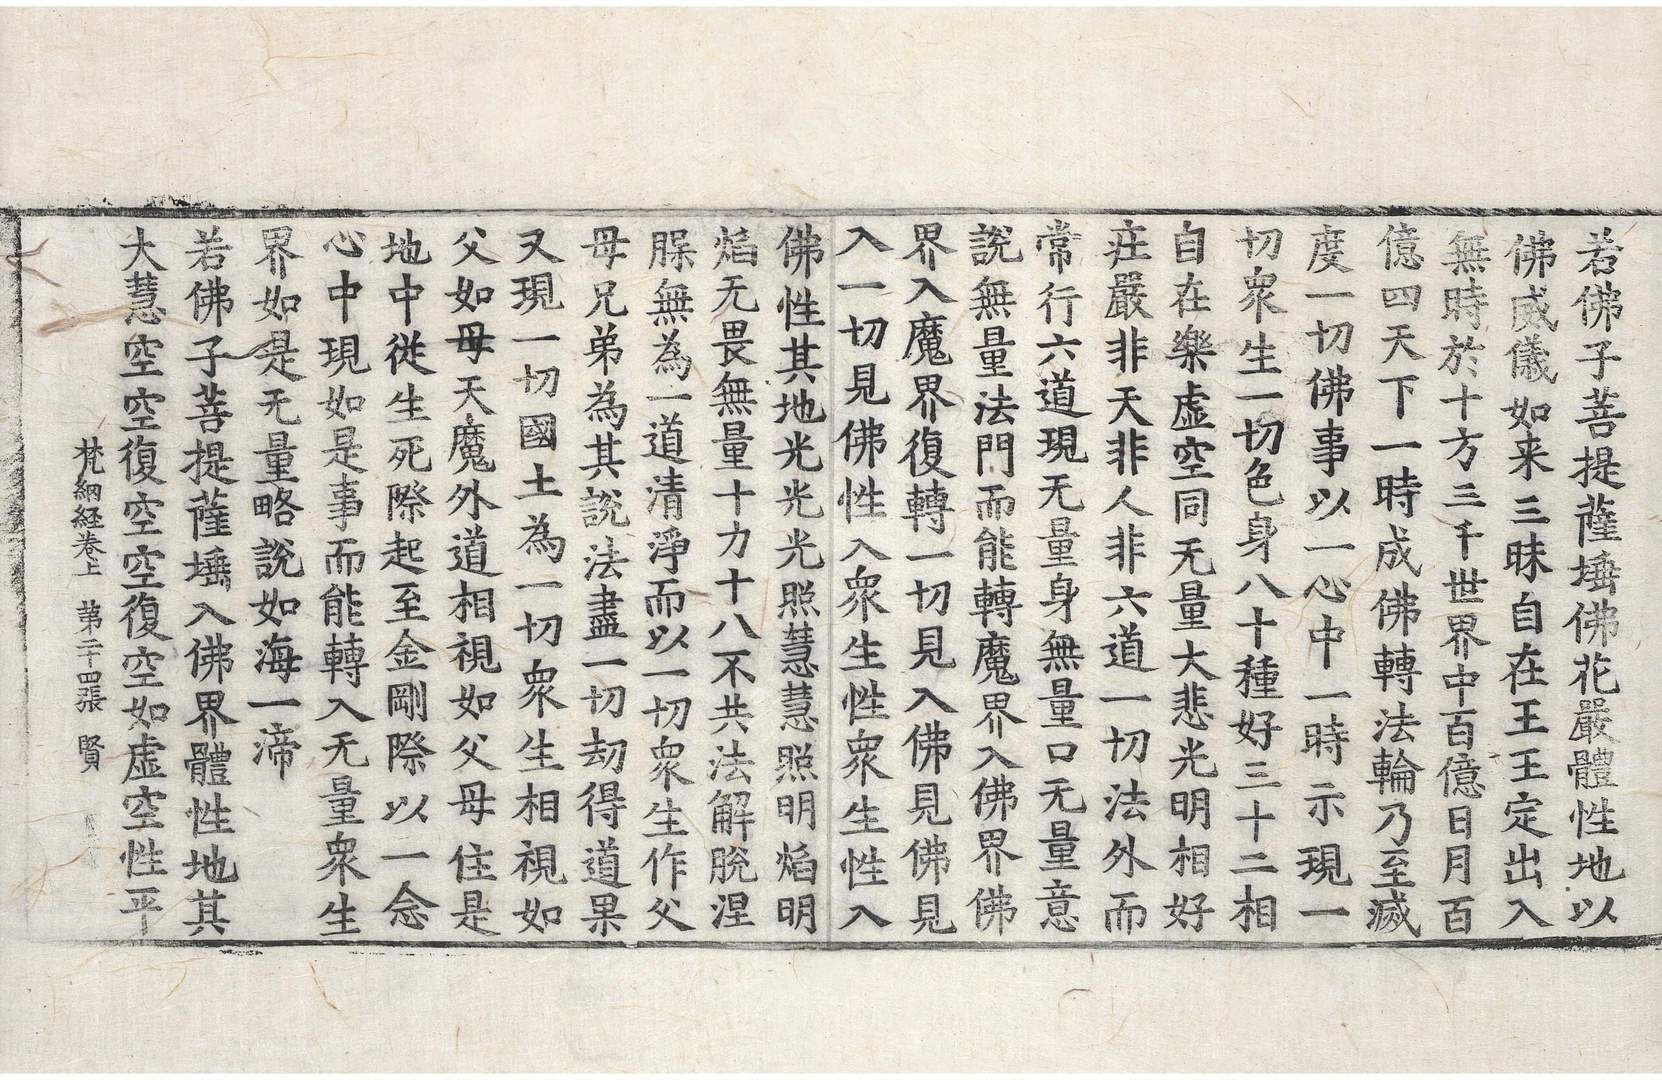 若佛子菩提薩埵佛花嚴體性地以
佛威儀如来三昧自在王王定出入
無時於十方三千世界中百億日月百
億四天下一時成佛轉法輪乃至滅
度一切佛事以一心中一時示現一
切衆生一切色身八十種好三十二相
自在樂虛空同无量大悲光明相好
庄嚴非天非人非六道一切法外而
常行六道現无量身無量口无量意
說無量法門而能轉魔界入佛界佛
界入魔界復轉一切見入佛見佛見
入一切見佛性入衆生性衆生性入
佛性其地光光光照慧慧照明焰明
焰无畏無量十力十八不共法解脫涅
槃無為一道清淨而以一切衆生作父
母兄弟為其說法盡一切劫得道果
又現一切國土為一切衆生相視如
父如母天魔外道相視如父母住是
地中從生死際起至金剛際以一念
心中現如是事而能轉入无量衆生
界如是无量略說如海一渧
若佛子菩提薩埵入佛界體性地其
大慧空空復空空復空如虛空性平
梵網経卷上 第二十四張 賢